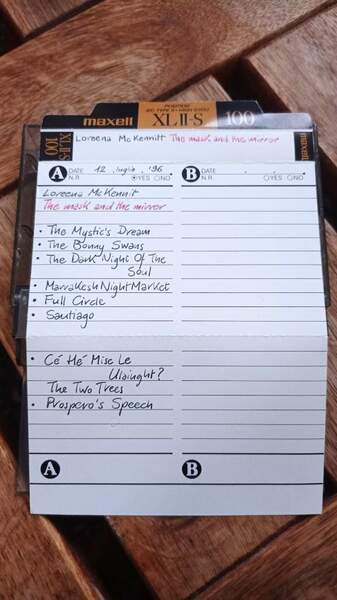 POSITION
IEC TYPE II • HIGH (CrO2)
maxell XL II-S 100
maxell XLII-S 100
Loreena McKennitt The mask and the mirror
maxell
A DATE 12, luglio, '96
N.R. YES NO
B DATE
N.R. YES NO
Loreena McKennit
The mask and the mirror
• The Mystic's Dream
• The Bonny Swans
• The Dark Night Of The
Soul
• Marrakesh Night Market
• Full Circle
• Santiago
• Cé Hé Mise Le
Ulaingt?
The Two Trees
• Prospero's Speech
A B